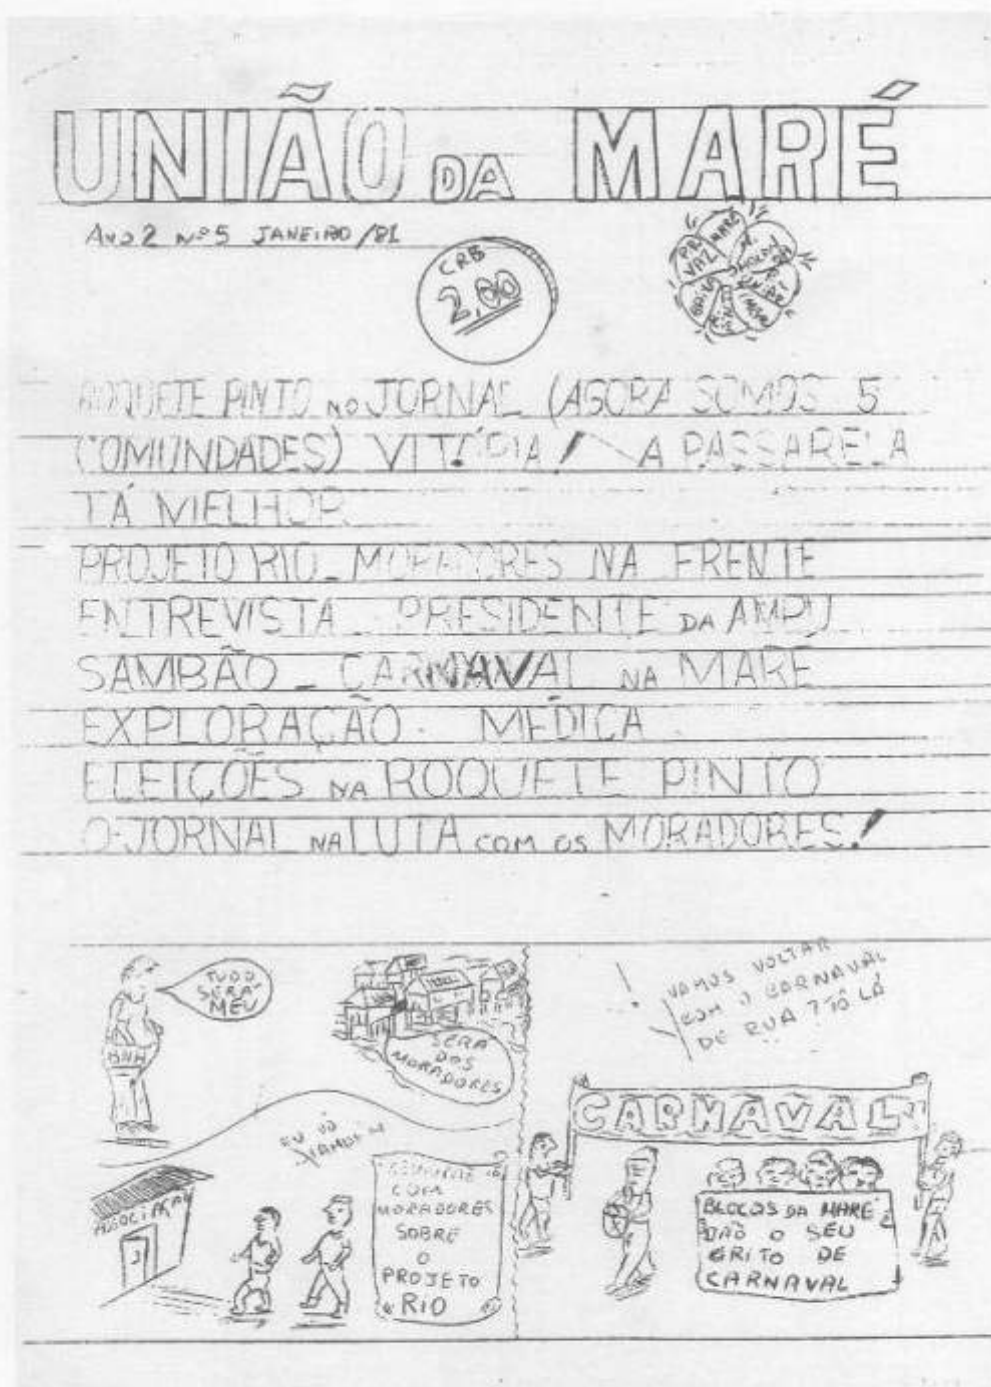 UNIÃO DA MARÉ
ANO 2 Nº 5 JANEIRO/81
CRB
2,00
MARÉ
ROQUETE PINTO NO JORNAL (AGORA SOMOS 5
COMUNDADES) VITÓRIA! A PASSARELA
TÁ MELHOR
PROJETO RIO - MORADORES NA FRENTE
ENTREVISTA PRESIDENTE DA AMPV
SAMBÃO - CARNAVAL NA MARÉ
EXPLORAÇÃO MÉDICA
ELEIÇÕES NA ROQUETE PINTO
O JORNAL NA LUTA COM OS MORADORES!
TUDO
SERÁ
MEU
BNH
SERA
DOS
MORADORES
EU VÔ
TAMBÉM
REUNIÃO
COM
MORADORES
SOBRE
O
PROJETO
RIO
VAMOS VOLTAR
COM O CARNAVAL
DE RUA ? TÔ LÁ
CARNAVAL
BLOCOS DA MARÉ
DÃO O SEU
GRITO DE
CARNAVAL